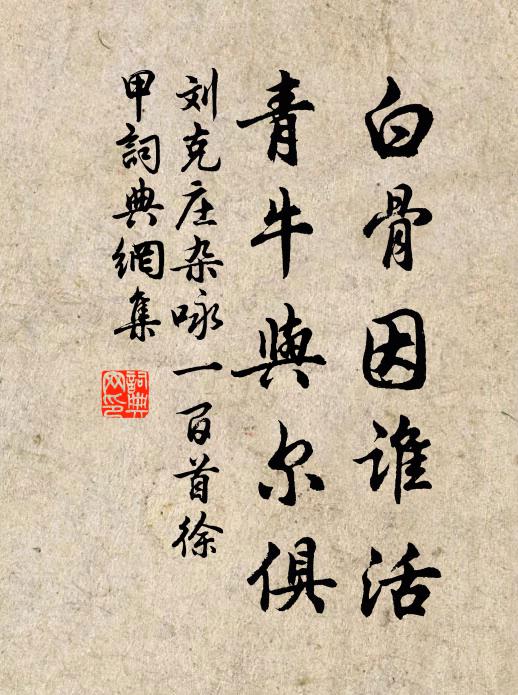 白骨因谁活
青牛與尔俱
刘克庄杂咏一百首徐
甲詞典網集
詞典
网印